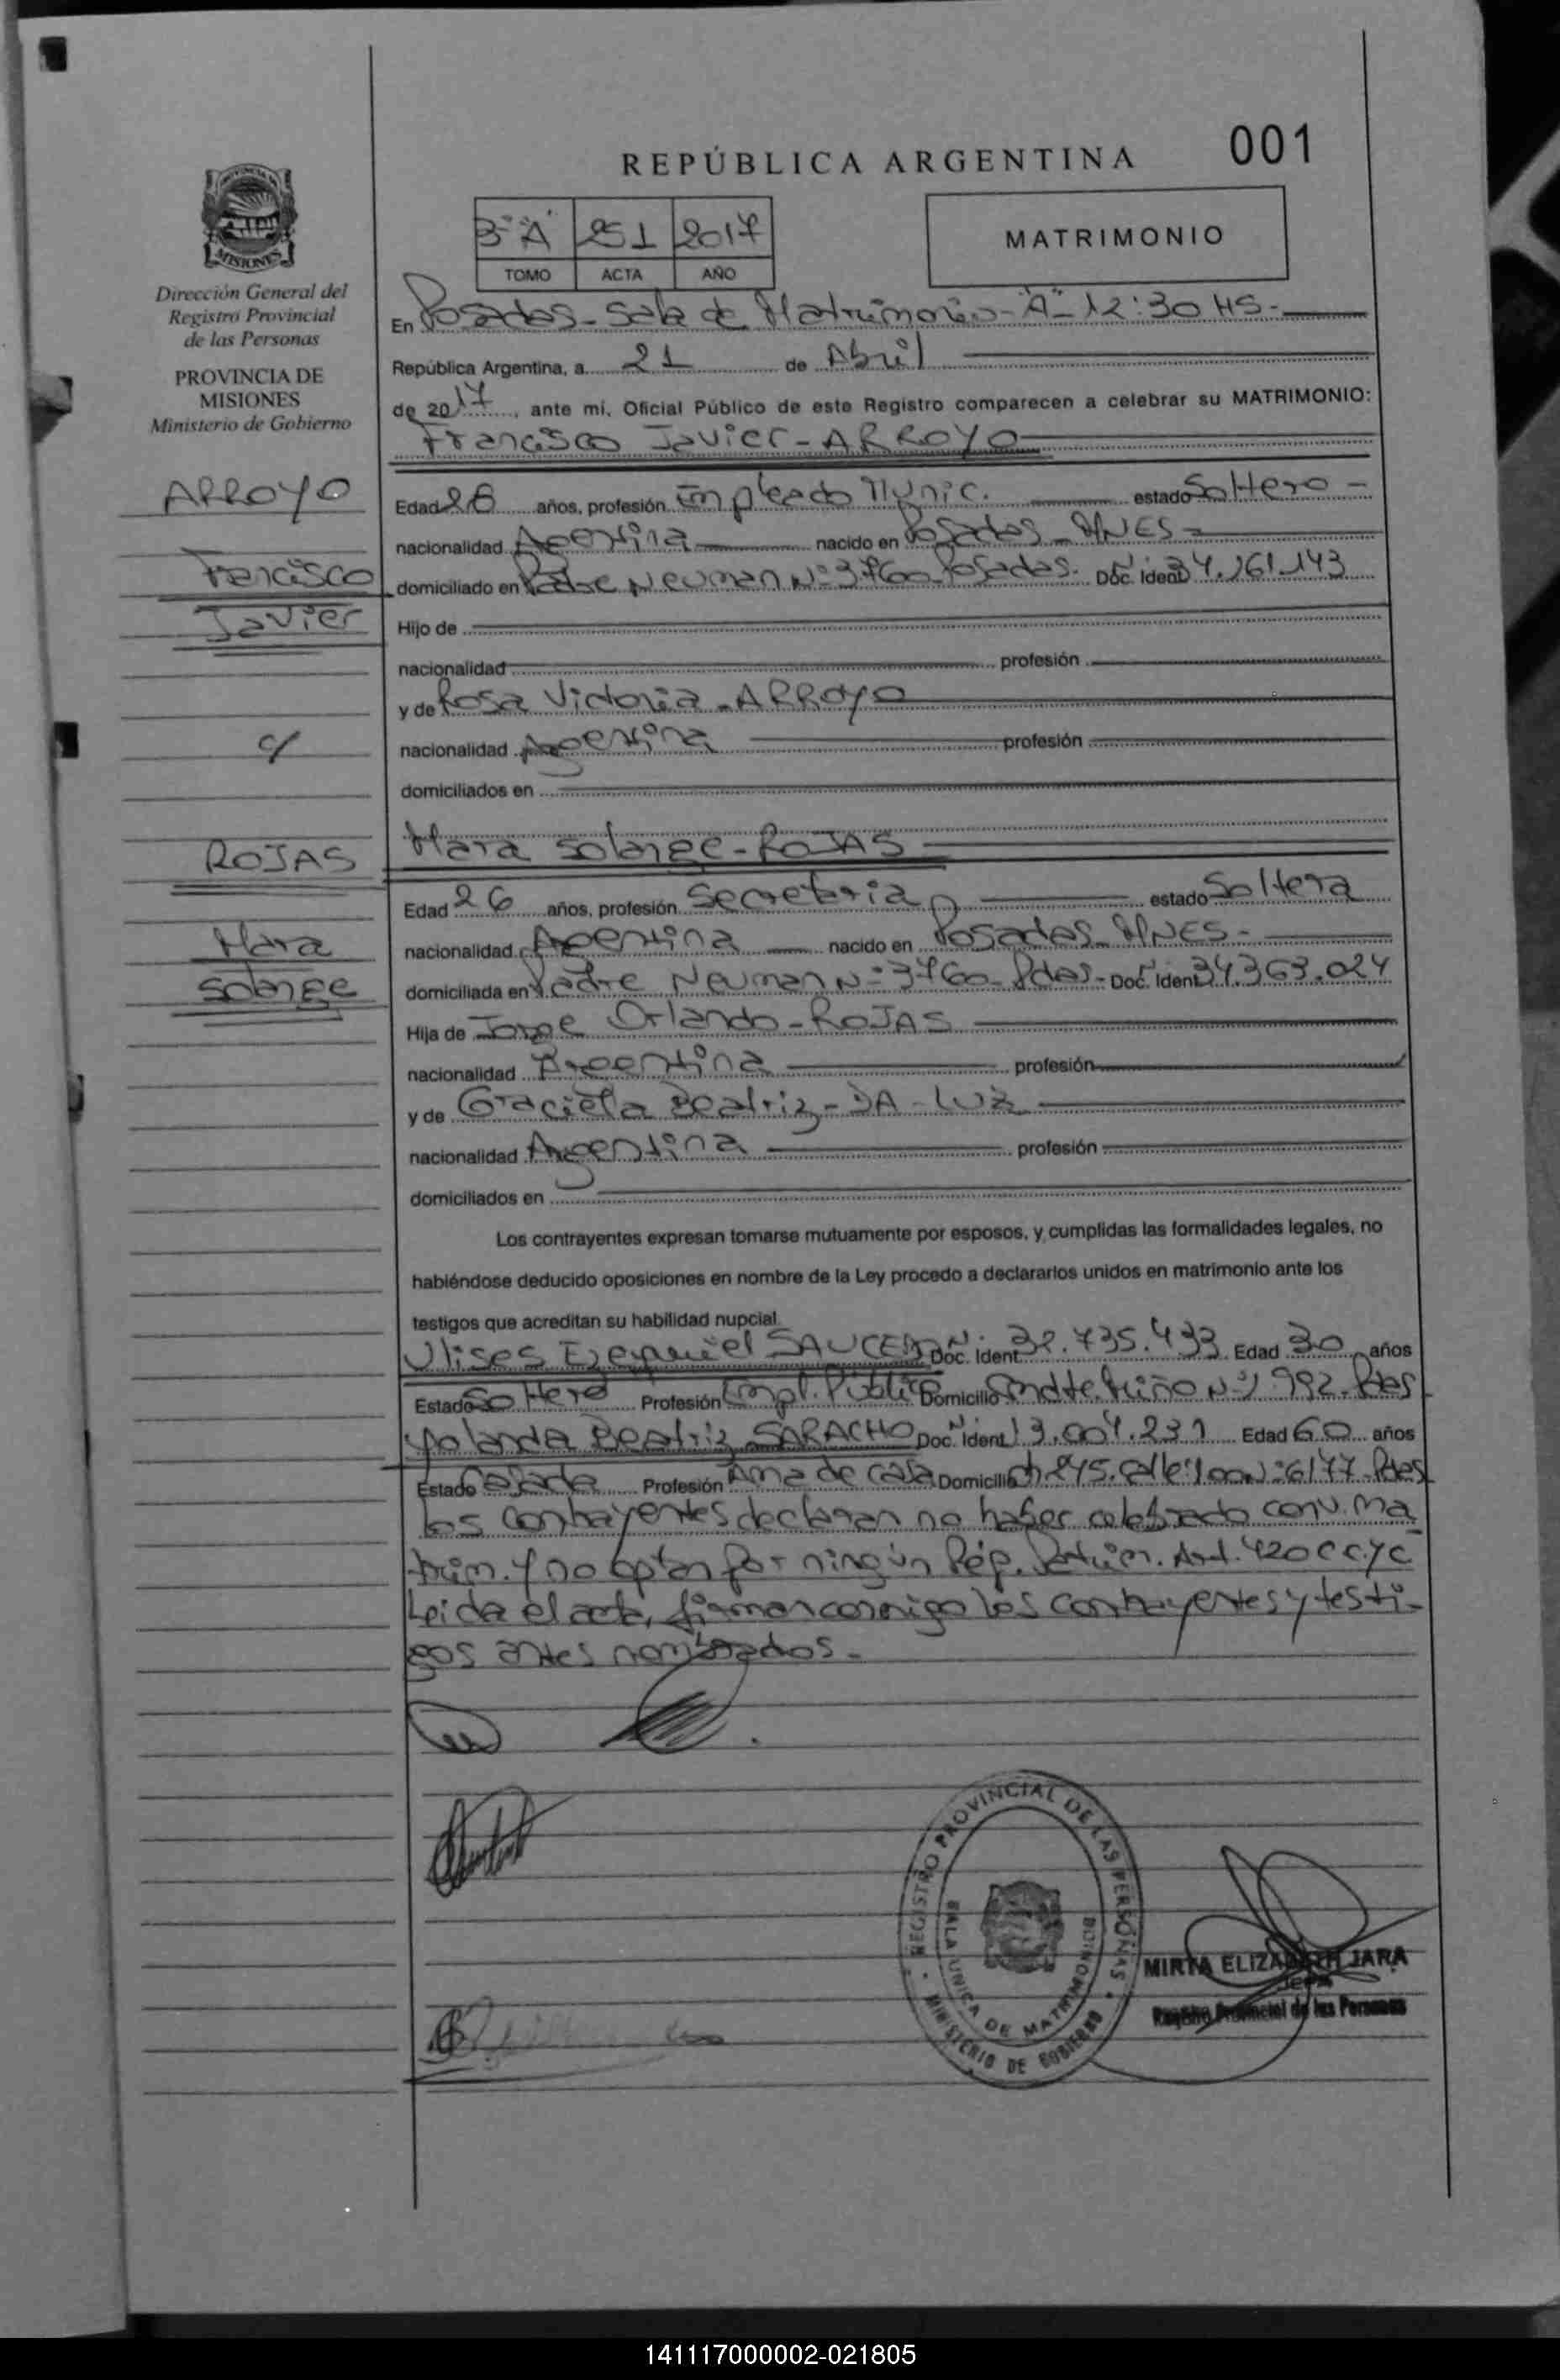 REPÚBLICA ARGENTINA
001
3º "A" 251 2017
TOMO ACTA AÑO
MATRIMONIO
MISIONES
Dirección General del
Registro Provincial
de las Personas
PROVINCIA DE
MISIONES
Ministerio de Gobierno
ARROYO
Francisco
Javier
c/
ROJAS
Mara
Solange
En Posadas - Sala de Matrimonio - "A" - 12:30 HS. -
República Argentina, a 21 de Abril
de 2017, ante mí, Oficial Público de este Registro comparecen a celebrar su MATRIMONIO:
Francisco Javier - ARROYO
Edad 28 años, profesión Empleado Munic. estado Soltero -
nacionalidad Argentina nacido en Posadas - MNES -
domiciliado en Padre Neuman Nº 3760 Posadas. Doc. Ident 34.161.143
Hijo de
nacionalidad profesión
y de Rosa Victoria - ARROYO
nacionalidad Argentina profesión
domiciliados en
Mara Solange - ROJAS
Edad 26 años, profesión Secretaria estado Soltera
nacionalidad Argentina nacido en Posadas - MNES -
domiciliada en Padre Neuman Nº 3760 - Pdas - Doc. Ident 34.363.024
Hija de Jorge Orlando - ROJAS
nacionalidad Argentina profesión
y de Graciela Beatriz - DA - LUZ
nacionalidad Argentina profesión
domiciliados en
Los contrayentes expresan tomarse mutuamente por esposos, y cumplidas las formalidades legales, no
habiéndose deducido oposiciones en nombre de la Ley procedo a declararlos unidos en matrimonio ante los
testigos que acreditan su habilidad nupcial.
Ulises Ezequiel SAUCEDO Doc. Ident 32.735.433 Edad 30 años
Estado Soltero Profesión Empl. Público Domicilio Cmdte. Miño Nº 992 - Pdas
Yolanda Beatriz SARACHO Doc. Ident 13.004.231 Edad 60 años
Estado Casada Profesión Ama de casa Domicilio Ch 245. Calle 100 Nº 6177 - Pdas
Los contrayentes declaran no haber celebrado conv. ma
trim. y no optan por ningún Rég. Patrim. Art. 420 C.C.y C
Leida el acta, firman conmigo los contrayentes y testi-
gos antes nombrados. -
REGISTRO PROVINCIAL DE LAS PERSONAS
SALA UNICA DE MATRIMONIOS
MINISTERIO DE GOBIERNO
MIRTA ELIZABETH JARA
JEFA
Registro Provincial de las Personas
141117000002-021805